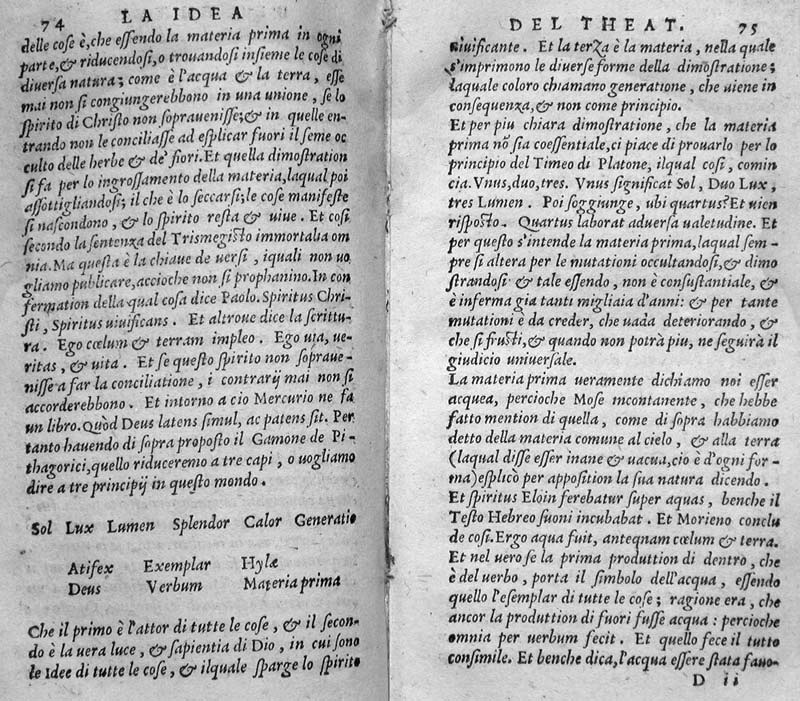 74 LA IDEA
delle cose è, che essendo la materia prima in ogni
parte, & riducendosi, o trouandosi insieme le cose di
diuersa natura; come è l'acqua & la terra, esse
mai non si congiungerebbono in una unione, se lo
spirito di Christo non soprauenisse; & in quelle en-
trando non le conciliasse ad esplicar fuori il seme oc
culto delle herbe & de' fiori. Et quella dimostration
si fa per lo ingrossamento della materia, laqual poi
assottigliandosi; il che è lo seccarsi; le cose manifeste
si nascondono, & lo spirito resta & uiue. Et cosi
secondo la sentenza del Trismegisto immortalia om
nia. Ma questa è la chiaue de uersi, iquali non uo
gliamo publicare, accioche non si prophanino. In con
fermation della qual cosa dice Paolo. Spiritus Chri-
sti, Spiritus uiuificans. Et altroue dice la scrittu-
ra. Ego cœlum & terram impleo. Ego uia, ue-
ritas, & uita. Et se questo spirito non soproue-
nisse a far la conciliatione, i contrarij mai non si
accorderebbono. Et intorno a cio Mercurio ne fa
un libro. Quòd Deus latens simul, ac patens sit. Per
tanto hauendo di sopra proposto il Gamone de Pi-
thagorici, quello riduceremo a tre capi, o uogliamo
dire a tre principij in questo mondo.
Sol Lux Lumen Splendor Calor Generatio
Atifex Exemplar Hylæ
Deus Verbum Materia prima
Che il primo è l'attor di tutte le cose, & il secon-
do è la uera luce, & sapientia di Dio, in cui sono
le Idee di tutte le cose, & ilquale sparge lo spirito
DEL THEAT. 75
uiuificante. Et la terza è la materia, nella quale
s'imprimono le diuerse forme della dimostratione;
laquale coloro chiamano generatione, che uiene in
consequenza, & non come principio.
Et per piu chiara dimostratione, che la materia
prima nõ sia coessentiale, ci piace di prouarlo per lo
principio del Timeo di Platone, ilqual cosi, comin
cia. Vnus, duo, tres. Vnus significat Sol, Duo Lux,
tres Lumen. Poi soggiunge, ubi quartus? Et uien
risposto. Quartus laborat aduersa ualetudine. Et
per questo s'intende la materia prima, laqual sem-
pre si altera per le mutationi occultandosi, & dimo
strandosi & tale essendo, non è consustantiale, &
è inferma gia tanti migliaia d'anni: & per tante
mutationi è da creder, che uada deteriorando, &
che si frusti, & quando non potrà piu, ne seguirà il
giudicio uniuersale.
La materia prima ueramente dichiamo noi esser
acquea, percioche Mose incontanente, che hebbe
fatto mention di quella, come di sopra habbiamo
detto della materia comune al cielo, & alla terra
(laqual disse esser inane & uacua, cio è d'ogni for-
ma) esplicò per apposition la sua natura dicendo.
Et spiritus Eloin ferebatur super aquas, benche il
Testo Hebreo suoni incubabat. Et Morieno conclu
de cosi. Ergo aqua fuit, anteqnam cœlum & terra.
Et nel uero se la prima produttion di dentro, che
è del uerbo, porta il simbolo dell'acqua, essendo
quello l'esemplar di tutte le cose; ragione era, che
ancor la produttion di fuori fusse acqua: percioche
omnia per uerbum fecit. Et quello fece il tutto
consimile. Et benche dica, l'acqua essere stata fauo-
D ii